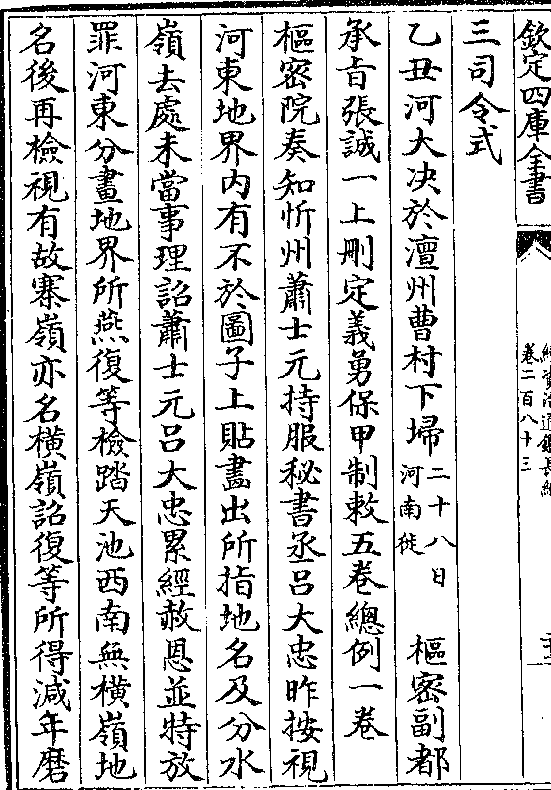 欽定四庫全書
續資治通鑑長編
卷二百八十三
三司令式
乙丑河大決於澶州曹村下埽二十八日河南徙 樞密副都
承旨張誠一上刪定義勇保甲制敕五卷總例一卷
樞密院奏知忻州蕭士元持服秘書丞呂大忠昨按視
河東地界内有不於圖子上貼畫出所指地名及分水
嶺去處未當事理詔蕭士元呂大忠累經赦恩並特放
罪河東分畫地界所燕復等檢踏天池西南無橫嶺地
名後再檢視有故寨嶺亦名橫嶺詔復等所得減年磨